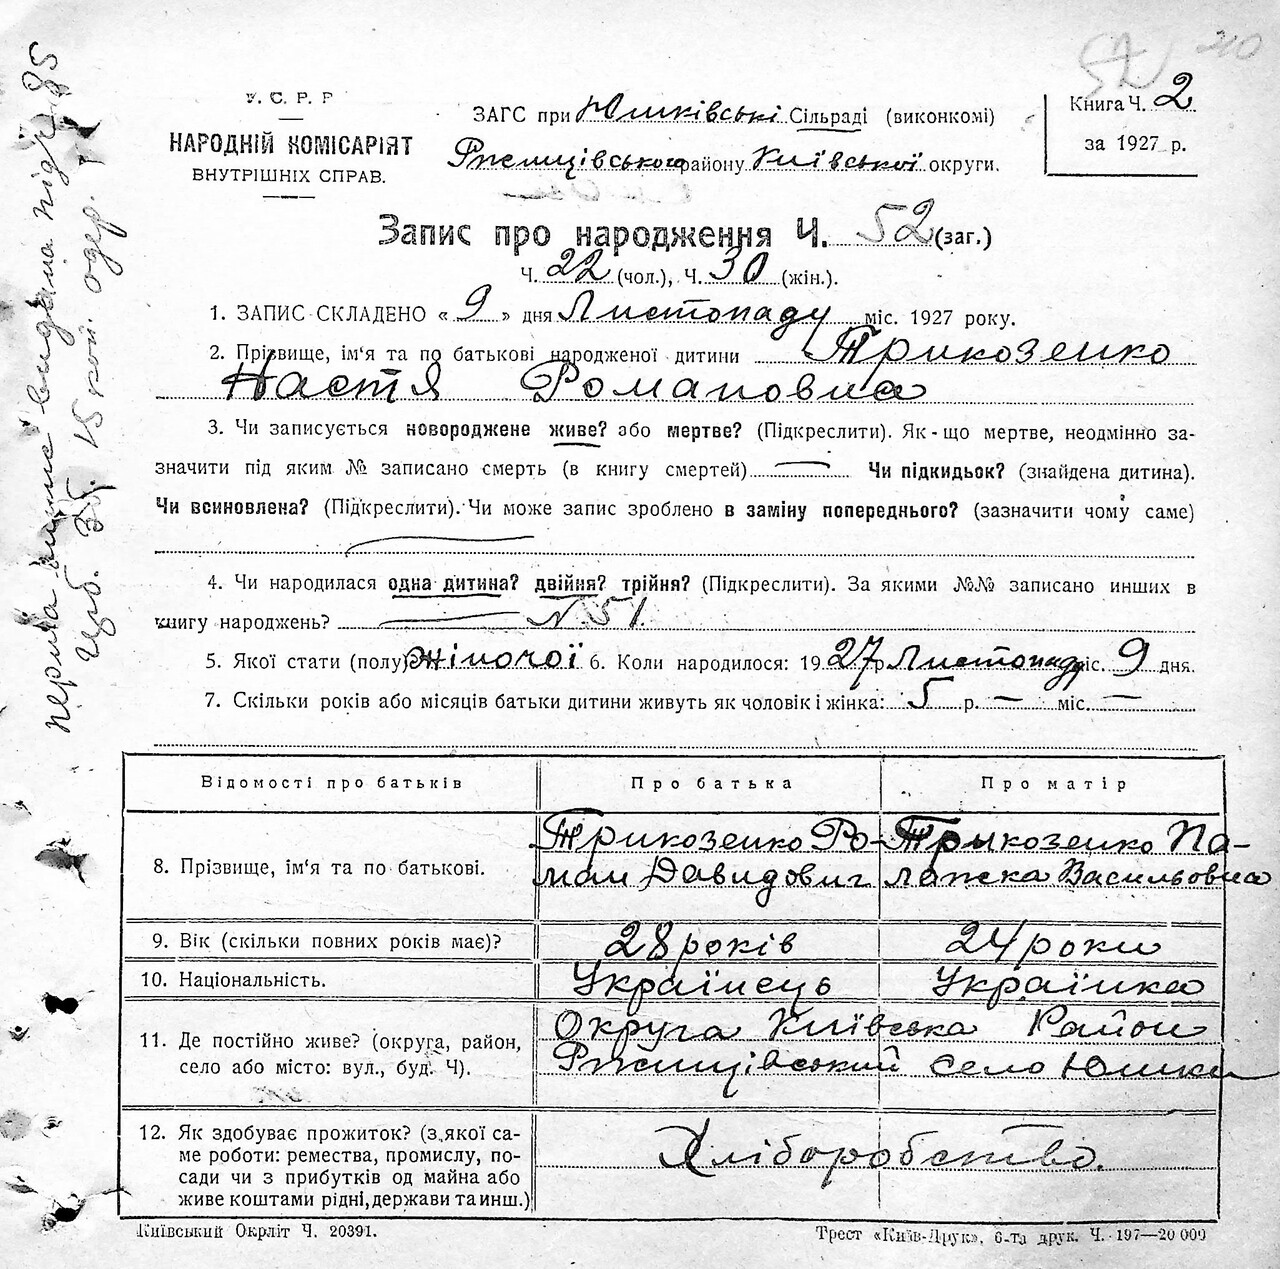 52
У. С. Р. Р
НАРОДНІЙ КОМІСАРІЯТ
ВНУТРІШНІХ СПРАВ.
ЗАГС при Юшківські Сільраді (виконкомі)
Ржищівського району Київської округи.
Книга Ч. 2
за 1927 р.
Запис про народження Ч. 52 (заг.)
Ч. 22 (чол.), Ч. 30 (жін.).
1. ЗАПИС СКЛАДЕНО « 9 » дня Листопаду міс. 1927 року.
2. Прізвище, ім'я та по батькові народженої дитини Трикозенко
Настя Романовна
3. Чи записується новороджене живе? або мертве? (Підкреслити). Як-що мертве, неодмінно за-
значити під яким № записано смерть (в книгу смертей) — Чи підкидьок? (знайдена дитина).
Чи всиновлена? (Підкреслити). Чи може запис зроблено в заміну попереднього? (зазначити чому саме)
4. Чи народилася одна дитина? двійня? трійня? (Підкреслити). За якими №№ записано инших в
книгу народжень? — N 51.
5. Якої стати (полу) жіночої 6. Коли народилося: 1927 р. Листопаду міс. 9 дня.
7. Скільки років або місяців батьки дитини живуть як чоловік і жінка: 5 р. — міс. —
Відомості про батьків Про батька Про матір
8. Прізвище, ім'я та по батькові.
Трикозенко Ро-
ман Давидович
Трыкозенко Па-
лажка Васильовна
9. Вік (скільки повних років має)? 28 років 24 роки
10. Національність. Українець Українка
11. Де постійно живе? (округа, район,
село або місто: вул., буд. Ч).
Округа Київська Район
Ржищівський село Юшки
12. Як здобуває прожиток? (з якої са-
ме роботи: ремества, промислу, по-
сади чи з прибутків од майна або
живе коштами рідні, держави та инш.)
Хліборобство.
Київський Окрліт Ч. 20391.
Трест «Київ-Друк», 6-та друк. Ч. 197—20 000
видана під № 85
35. 15 коп. одер.